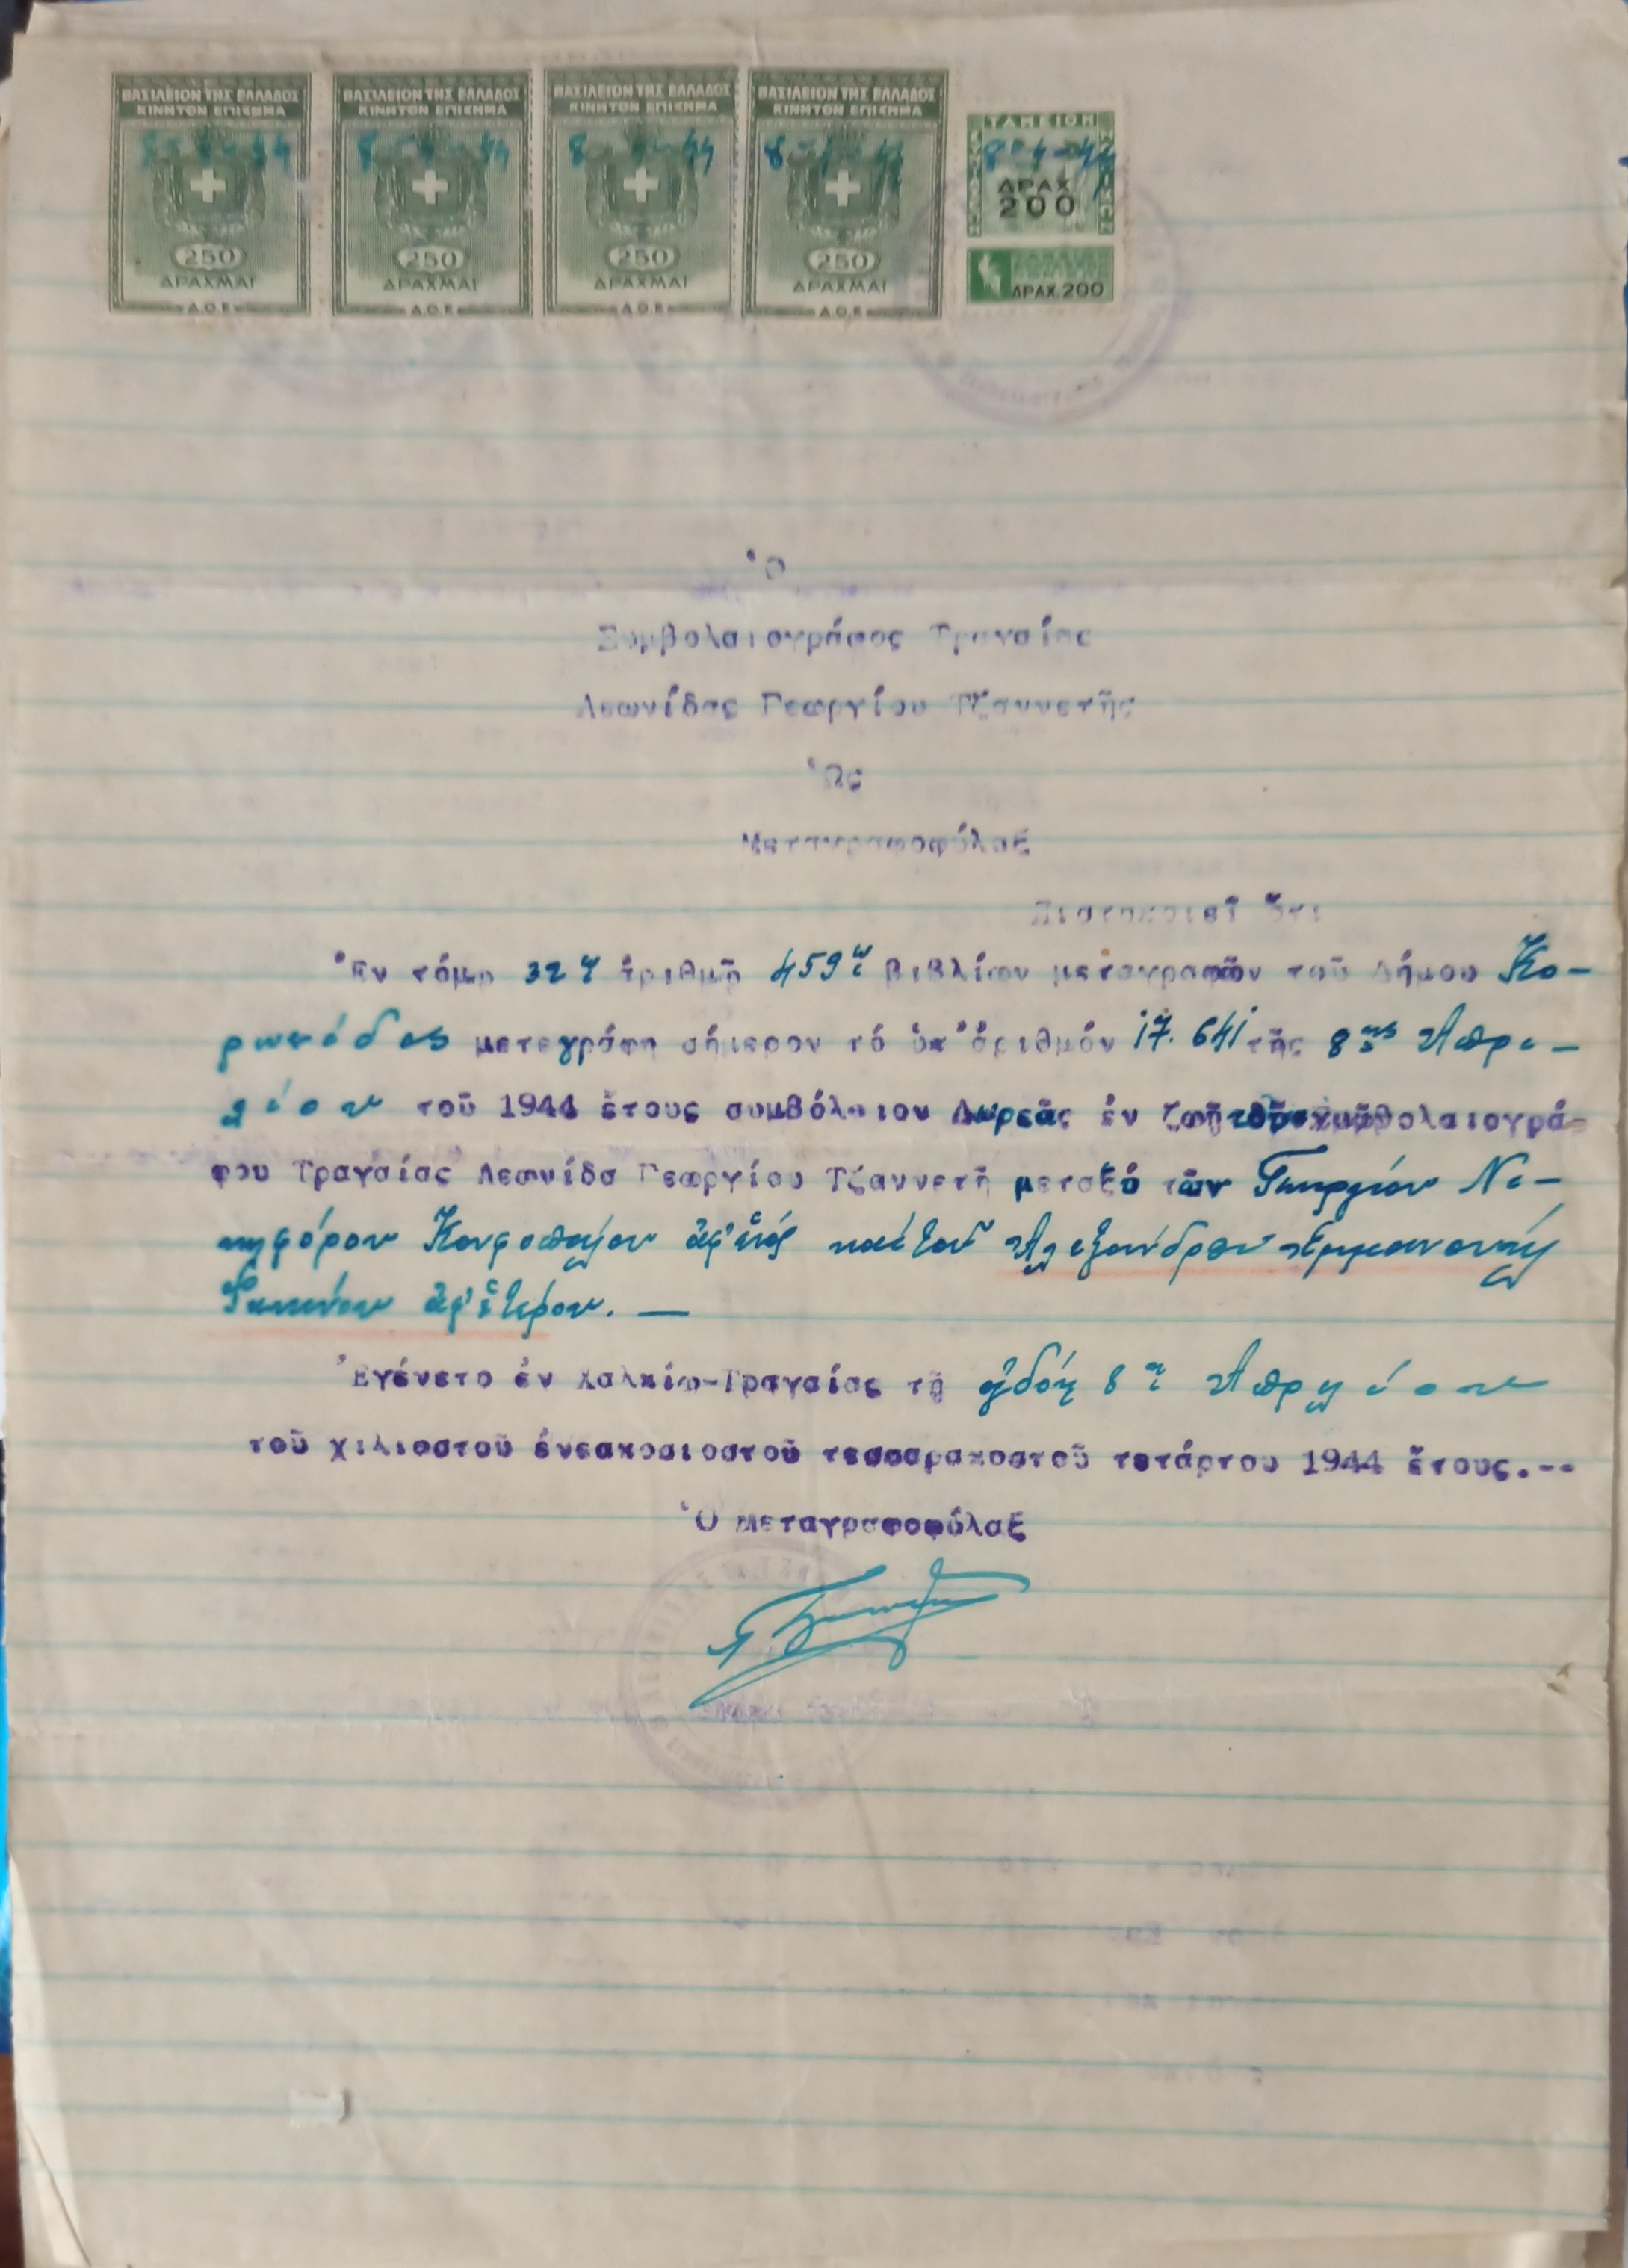 ΒΑΣΙΛΕΙΟΝ ΤΗΣ ΕΛΛΑΔΟΣ ΒΑΣΙΛΕΙΟΝ ΤΗΣ ΕΛΛΑΔΟΣ ΒΑΣΙΛΕΙΟΝ ΤΗΣ ΕΛΛΑΔΟΣ ΒΑΣΙΛΕΙΟΝ ΤΗΣ ΕΛΛΑΔΟΣ
ΚΙΝΗΤΟΝ ΕΠΙΣΗΜΑ ΚΙΝΗΤΟΝ ΕΠΙΣΗΜΑ ΚΙΝΗΤΟΝ ΕΠΙΣΗΜΑ ΚΙΝΗΤΟΝ ΕΠΙΣΗΜΑ ΤΑΜΕΙΟΝ
8-4-44 8-4-44 8-4-44 8-4-44 8-4-44
ΔΡΑΧ
200
250 250 250 250
ΔΡΑΧΜΑΙ ΔΡΑΧΜΑΙ ΔΡΑΧΜΑΙ ΔΡΑΧΜΑΙ ΔΡΑΧ. 200
Δ.Ο.Ε Δ.Ο.Ε Δ.Ο.Ε Δ.Ο.Ε
Ὁ
Συμβολαιογράφος Τραγαίας
Λεωνίδας Γεωργίου Τζαννετῆς
Ὡς
Μεταγραφοφύλαξ
Πιστοποιεῖ ὅτι
Ἐν τόμῳ 32ῳ ἀριθμῷ 459ῳ βιβλίων μεταγραφῶν τοῦ Δήμου Κο-
ρωνίδος μετεγράφη σήμερον τό ὑπ'ἀριθμόν 17.641 τῆς 8ης Απρι-
λίου τοῦ 1944 ἔτους συμβόλαιον Δωρεᾶς ἐν ζωῇ συμβολαιογρά-
φου Τραγαίας Λεωνίδα Γεωργίου Τζαννετῆ μεταξύ τῶν Γεωργίου Νι-
κηφόρου ἀφ'ἑνός καί τοῦ Αλεξάνδρου Εμμανουήλ
ἀφ'ἑτέρου. —
Ἐγένετο ἐν Χαλκίω-Τραγαίας τῇ ὀγδόῃ 8ῃ Απριλίου
τοῦ χιλιοστοῦ ἐνεακοσιοστοῦ τεσσαρακοστοῦ τετάρτου 1944 ἔτους.--
Ὁ Μεταγραφοφύλαξ